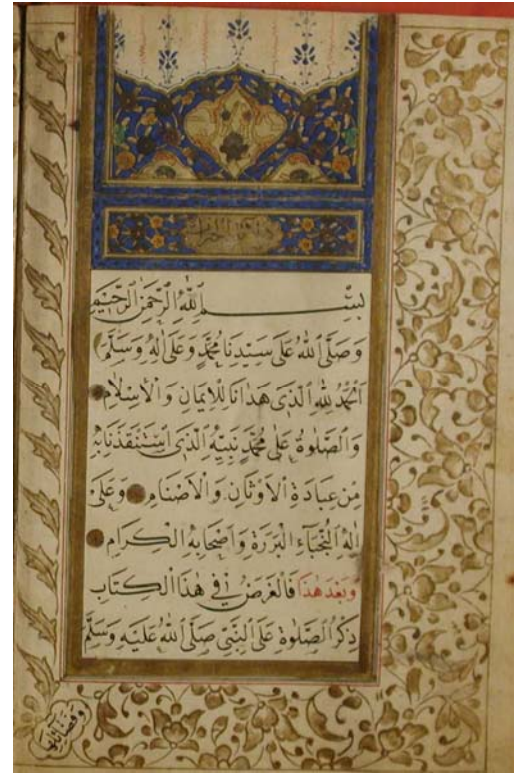 بِسْمِ اللّٰهِ الرَّحْمٰنِ الرَّحِيمِ
وَصَلَّى اللّٰهُ عَلَى سَيِّدِنَا مُحَمَّدٍ وَعَلَى اٰلِهِ وَسَلَّمَ
اَلْحَمْدُ لِلّٰهِ الَّذِى هَدَانَا لِلْاِيمَانِ وَالْاِسْلَامِ
وَالصَّلٰوةُ عَلَى مُحَمَّدٍ نَبِيِّهِ الَّذِى اسْتَنْقَذَنَا بِهِ
مِنْ عِبَادَةِ الْاَوْثَانِ وَالْاَصْنَامِ وَعَلَى
اٰلِهِ النُّجَبَاءِ الْبَرَرَةِ وَاَصْحَابِهِ الْكِرَامِ
وَبَعْدَ هٰذَا فَالْغَرَضُ فِى هٰذَا الْكِتَابِ
ذِكْرُ الصَّلٰوةِ عَلَى النَّبِىِّ صَلَّى اللّٰهُ عَلَيْهِ وَسَلَّمَ
وفضائلها